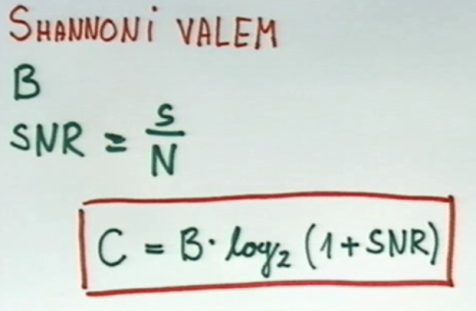 SHANNONi VALEM
B
SNR = S/N
C = B · log₂ (1 + SNR)